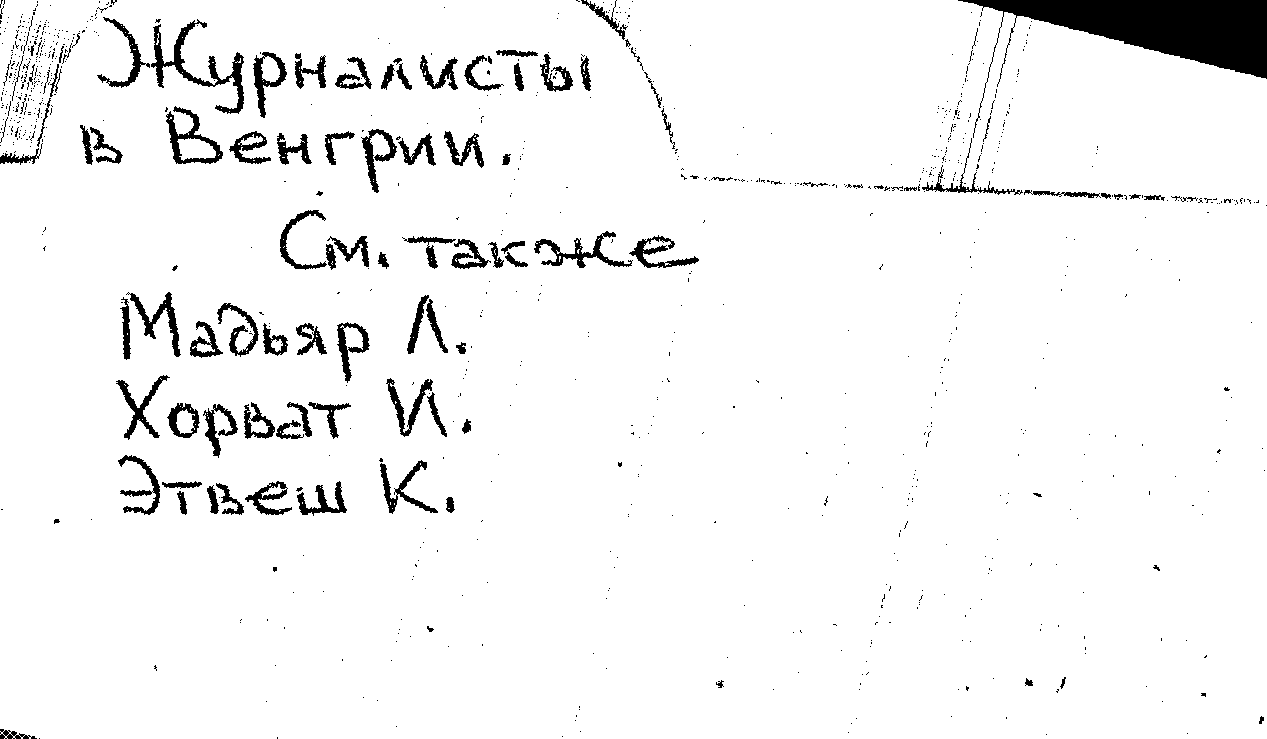 Журналисты
в Венгрии.
См. также
Мадьяр Л.
Хорват И.
Этвеш К.